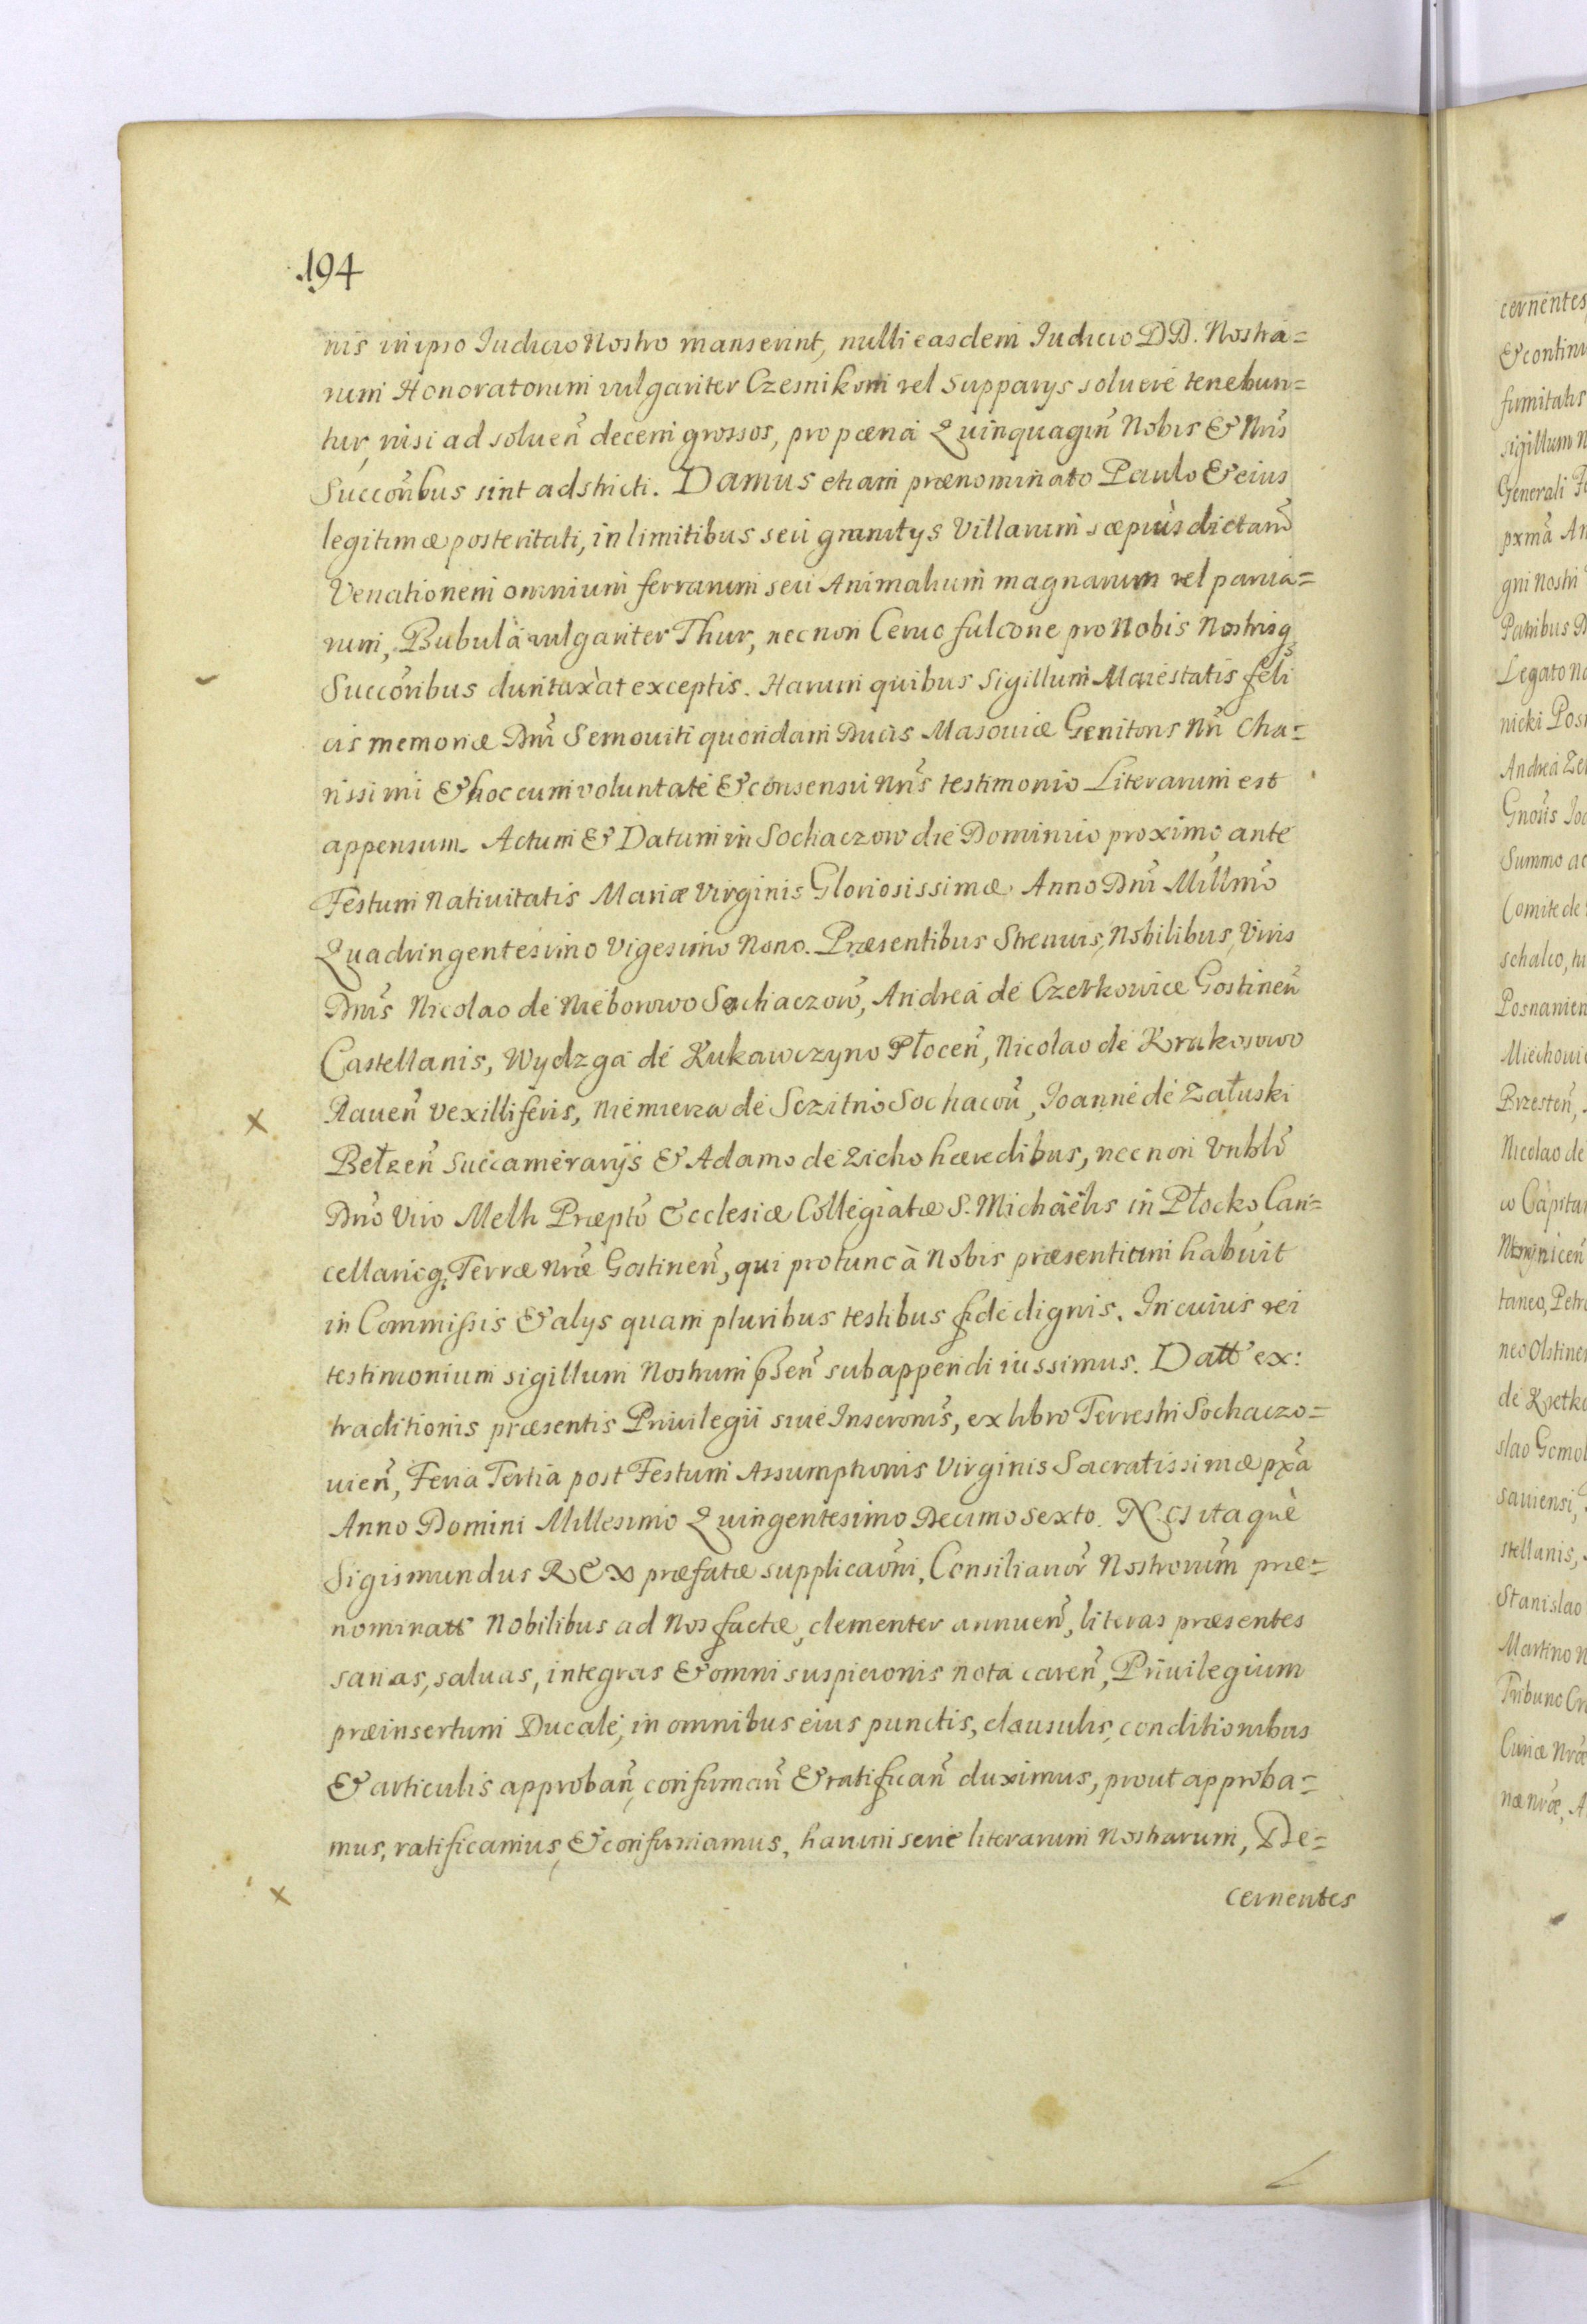 194
nis in ipso Iudicio Nostro manserint, nulli easdem Iudicio DD. Nostra=
rum Honoratorum vulgariter Czesnikom vel Supparys soluere tenebun=
tur, nisi ad soluen̄ decem grossos, pro pœna Quinquagin̄ Nobis & Nr̄is
Succōribus sint adstricti. Damus etiam prænominato Paulo & eius
legitimæ posteritati, in limitibus seu granitys Villarum sæpius dictar̄
Venationem omnium ferrarum seu Animalium magnarum vel parua=
rum, Bubula vulgariter Thur, necnon Ceruo fulcone pro Nobis Nostrisq̨
Succōribus duntaxàt exceptis. Harum quibus Sigillum Maiestatis feli
cis memoriæ Dn̄i Semouiti quondam Ducis Masouiæ Genitoris Nr̄i Cha=
rissimi & hoc cum voluntate & consensu Nr̄is testimonio Literarum est
appensum. Actum & Datum in Sochaczow die Dominico proximo ante
Festum Natiuitatis Mariæ Virginis Gloriosissimæ Anno Dn̄i Millm̄o
Quadringentesimo Vigesimo Nono. Præsentibus Strenuis, Nobilibus, Viris
Dn̄is Nicolao de Nieborowo Sochaczow̄, Andrea de Czerkowice Gostinen̄
Castellanis, Wydzga de Kukawczyno Płocen̄, Nicolao de Krakosowo
Rauen̄ vexilliferis, Niemierza de Sczitno Sochacou̅, Joanne de Załuski
Bełzen̄ Succamerarys & Adamo de Zicho hæredibus, necnon Vnblo̅
Dn̄o Viro Melh Præpto̅ Ecclesiæ Collegiatæ S. Michaëlis in Płocko, Can=
cellarioq̨ Terræ Nr̄æ Gostinen̄, qui protunc à Nobis præsentium habuit
in Commissis & alys quam pluribus testibus fide dignis. In cuius rei
testimonium sigillum Nostrum pn̄sen̄ subappendi iussimus. Datt̄ ex:
traditionis præsentis Priuilegii siue Inscronis̅, ex libro Terrestri Sochaczo=
uien̄, Feria Tertia post Festum Assumptionis Virginis Sacratissimæ px̄a
Anno Domini Millesimo Quingentesimo Decimo Sexto. Nos itaque
Sigismundus REX præfatæ supplicaōni, Consiliarior̄ Nostrorum præ=
nominatt̄ Nobilibus ad Nos factæ, clementer annuen̄, literas præsentes
sanas, saluas, integras & omni suspicionis nota caren̄, Priuilegium
præinsertum Ducale, in omnibus eius punctis, clausulis, conditionibus
& articulis approban̄, confirman̄ & ratifican̄ duximus, prout approba=
mus, ratificamus, & confirmamus, harum serie literarum Nostrarum, De=
cernentes